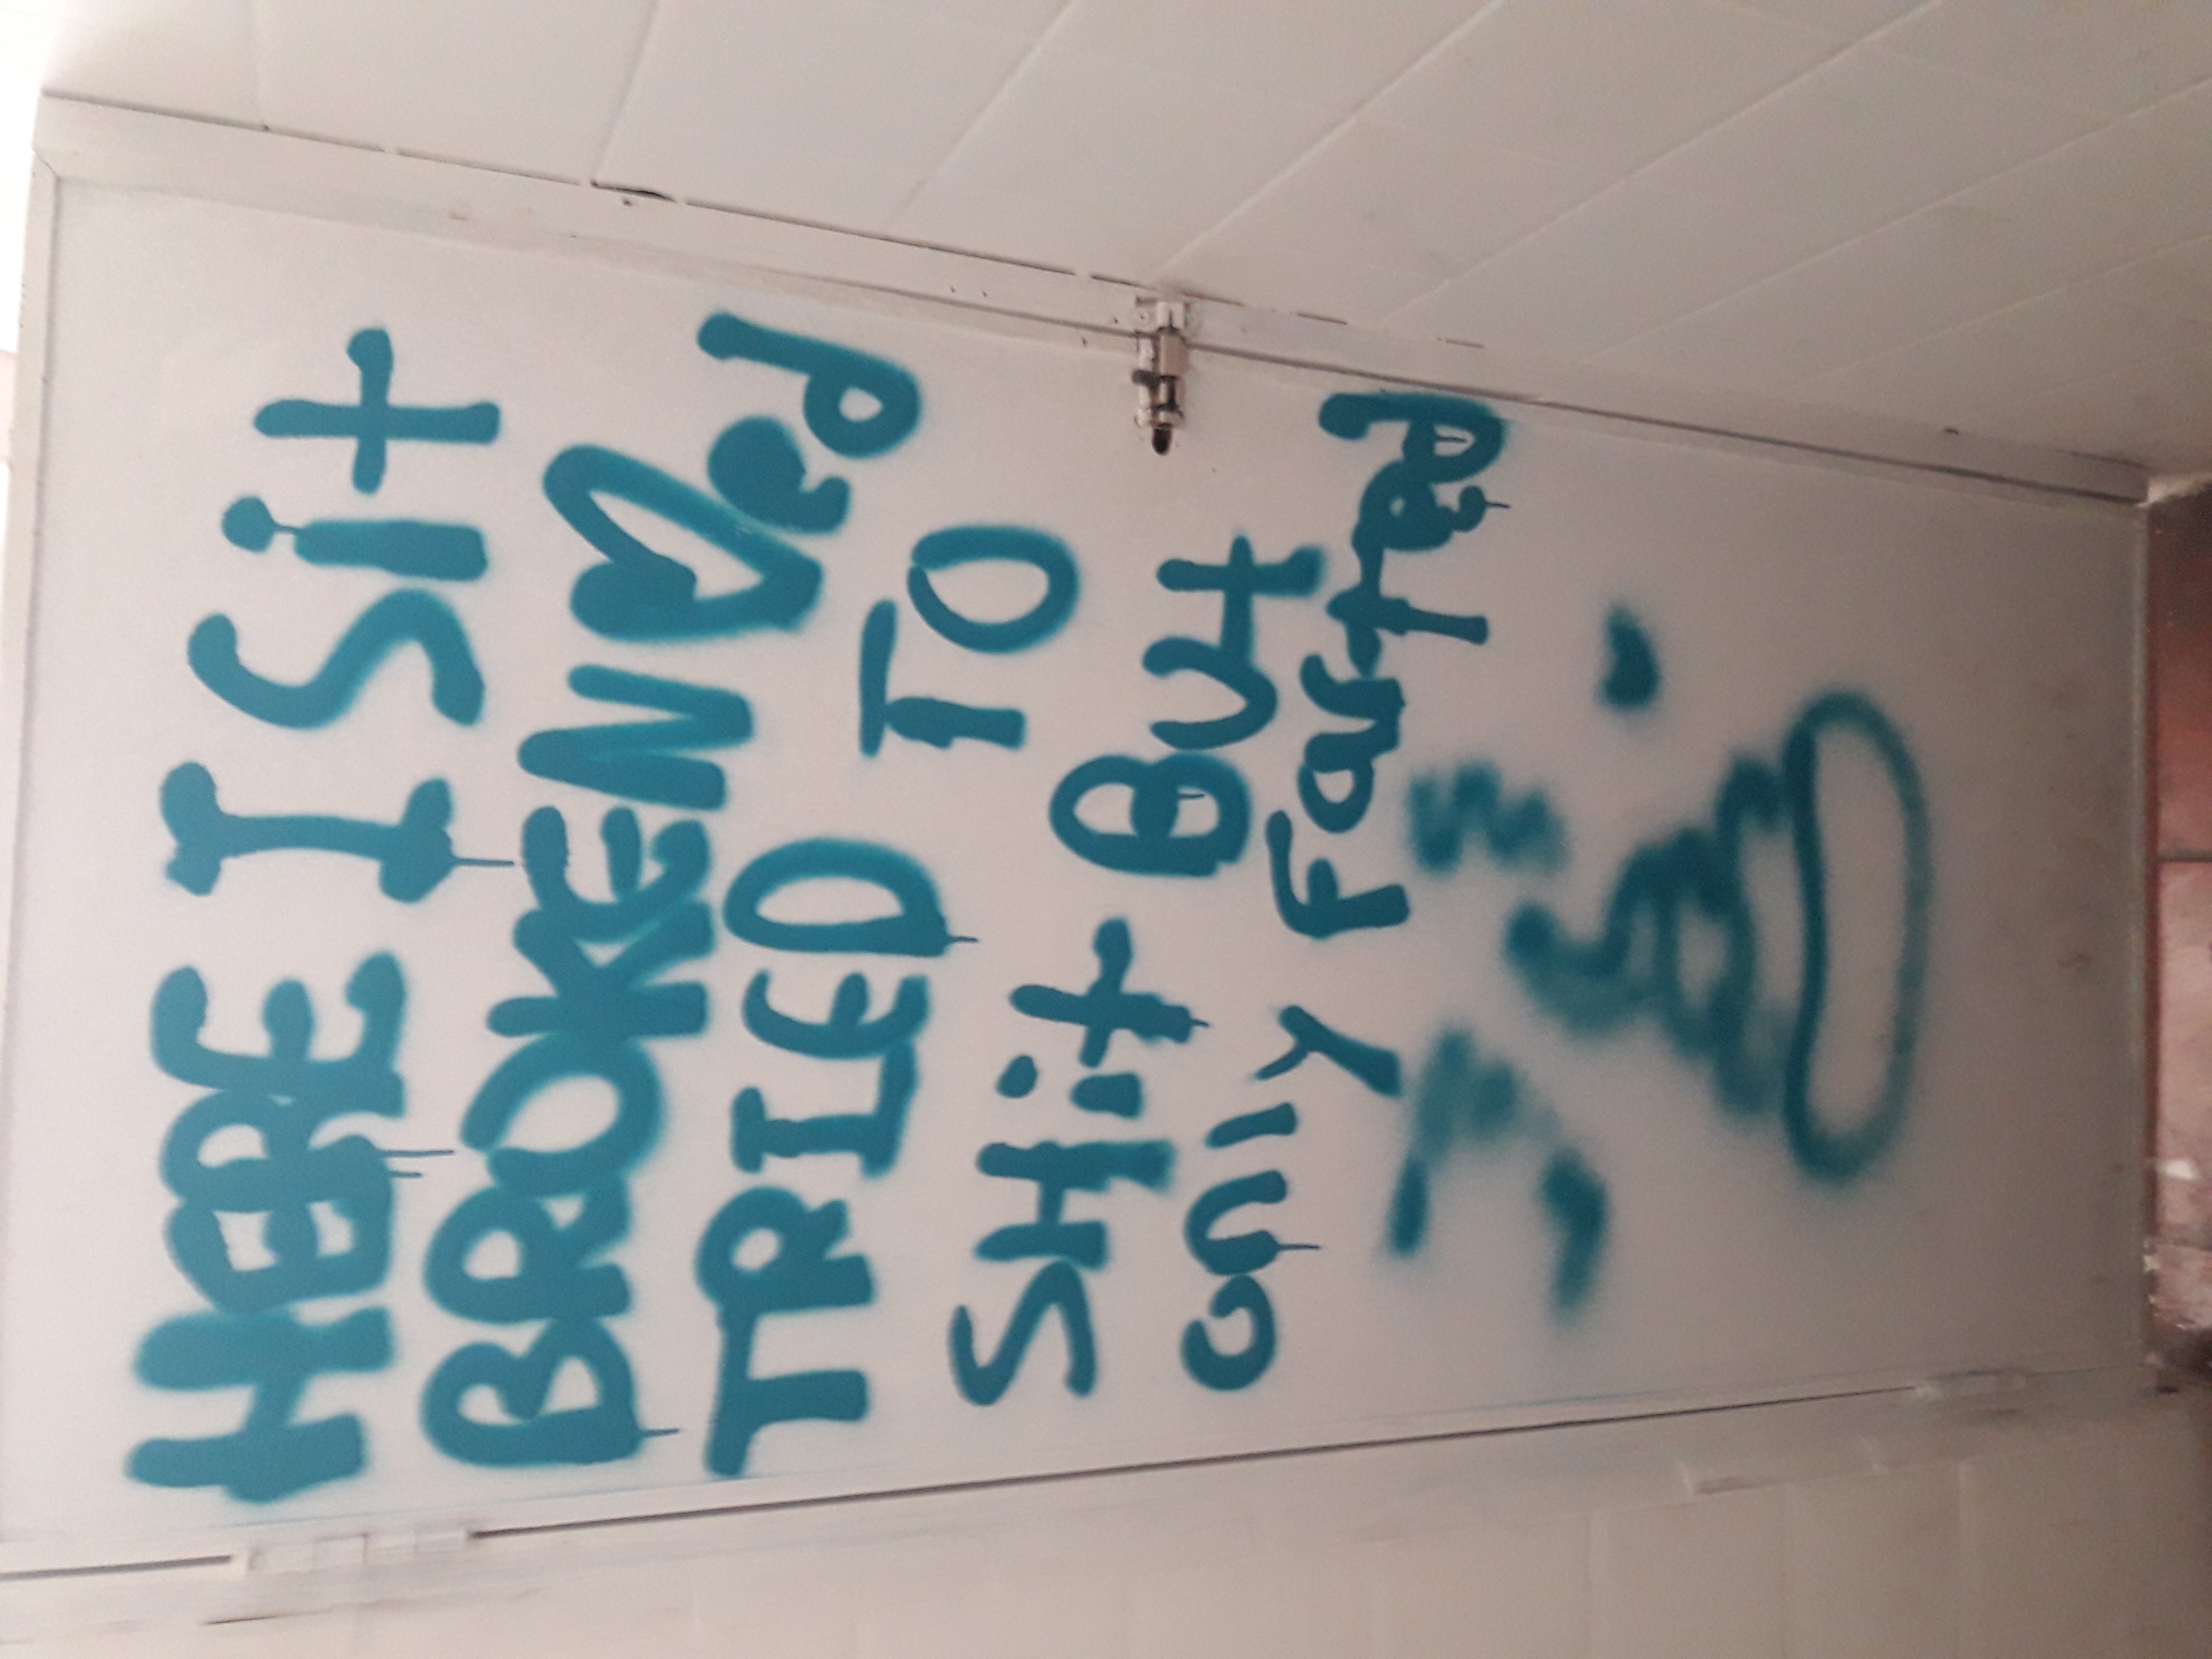 HERE I Sit
BROKEN ♥ed
TRIED TO
SHit But
only Farted